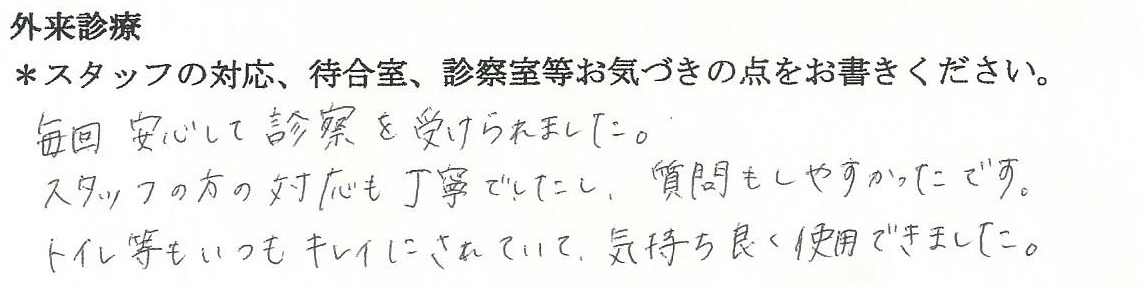 外来診療
＊スタッフの対応、待合室、診察室等お気づきの点をお書きください。
毎回 安心して診察を受けられました。
スタッフの方の対応も丁寧でしたし、質問もしやすかったです。
トイレ等もいつもキレイにされていて、気持ち良く使用できました。